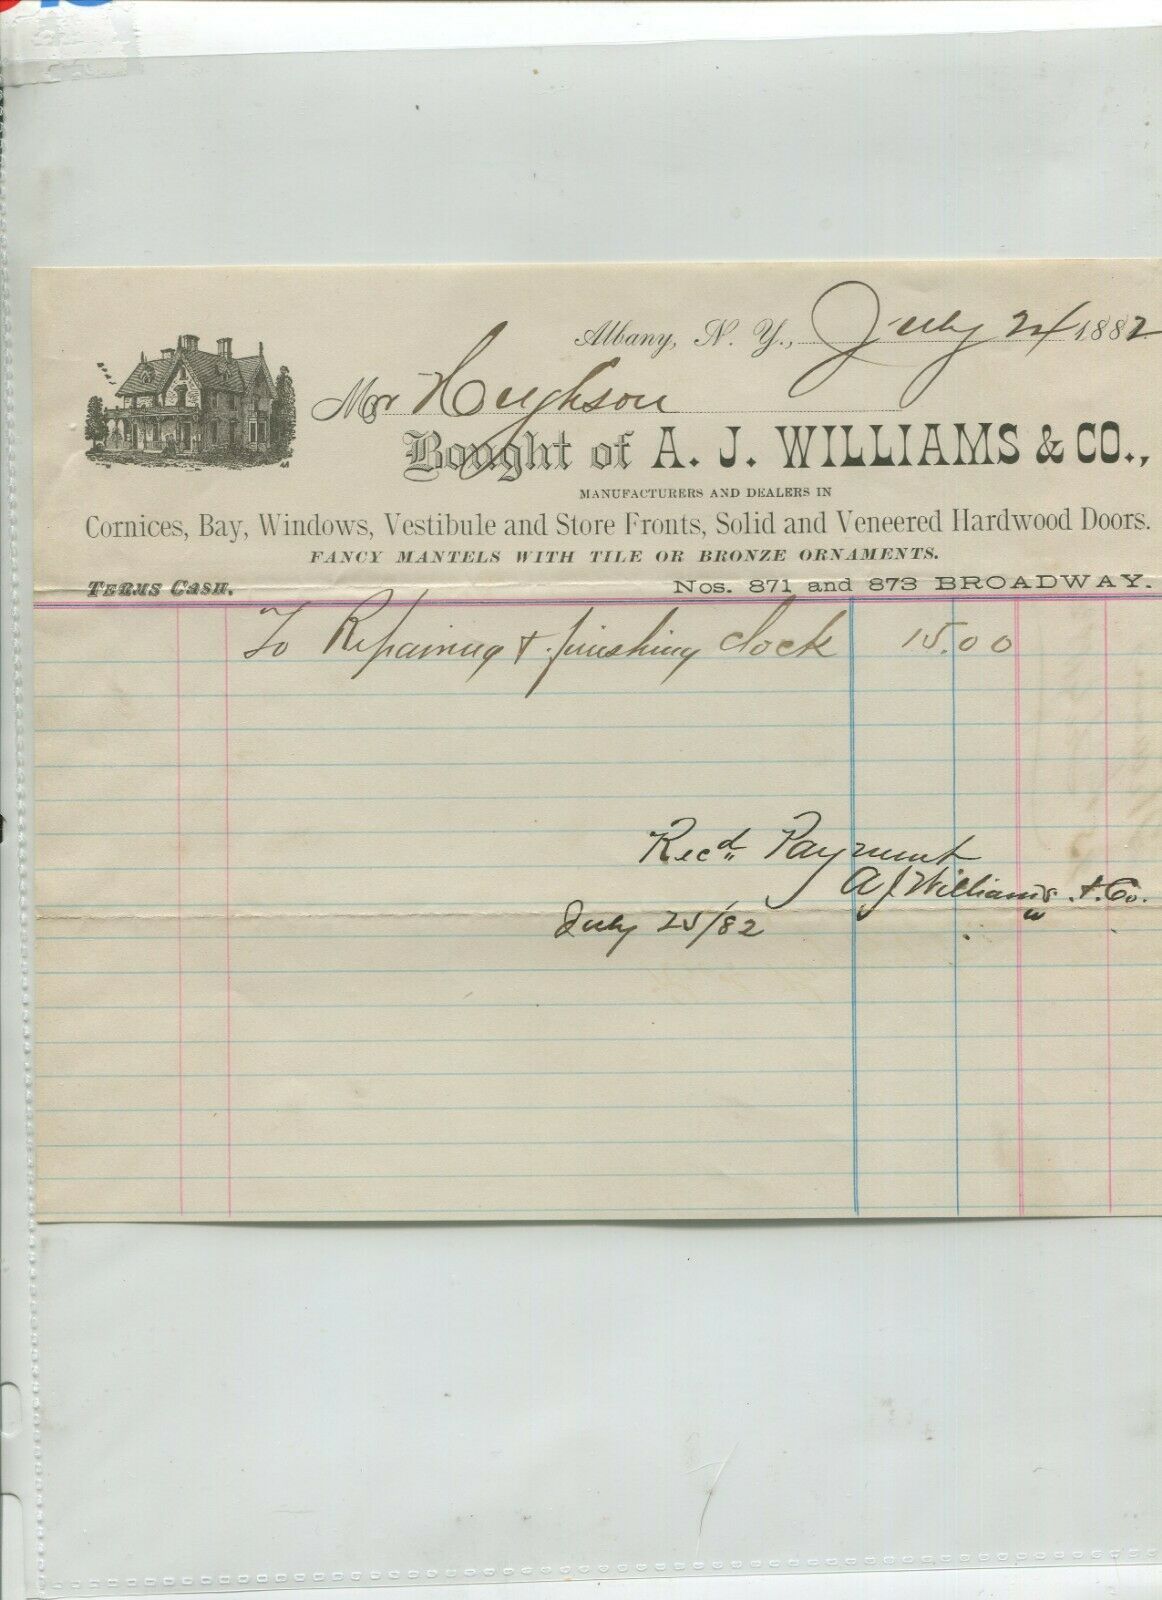 Albany, N. Y., July 24 1882
Mr Hughson
Bought of A. J. WILLIAMS & CO.,
MANUFACTURERS AND DEALERS IN
Cornices, Bay, Windows, Vestibule and Store Fronts, Solid and Veneered Hardwood Doors.
FANCY MANTELS WITH TILE OR BRONZE ORNAMENTS.
TERMS CASH. Nos. 871 and 873 BROADWAY.
To Repairing & finishing clock 15.00
Recd Payment
A J Williams & Co.
July 25/82